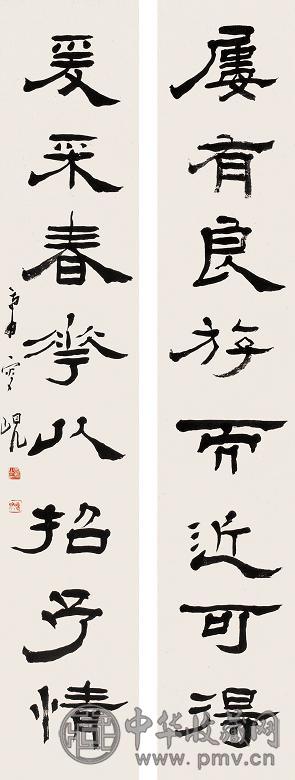 屢有良斿而近可得
爰采春華以招予情
中华收藏网
www.pmv.cn